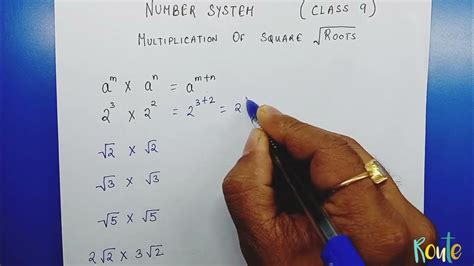 NUMBER SYSTEM (CLASS 9)
MULTIPLICATION OF SQUARE √ROOTS
a^m × a^n = a^{m+n}
2^3 × 2^2 = 2^{3+2} = 2
√2 × √2
√3 × √3
√5 × √5
2√2 × 3√2
Route